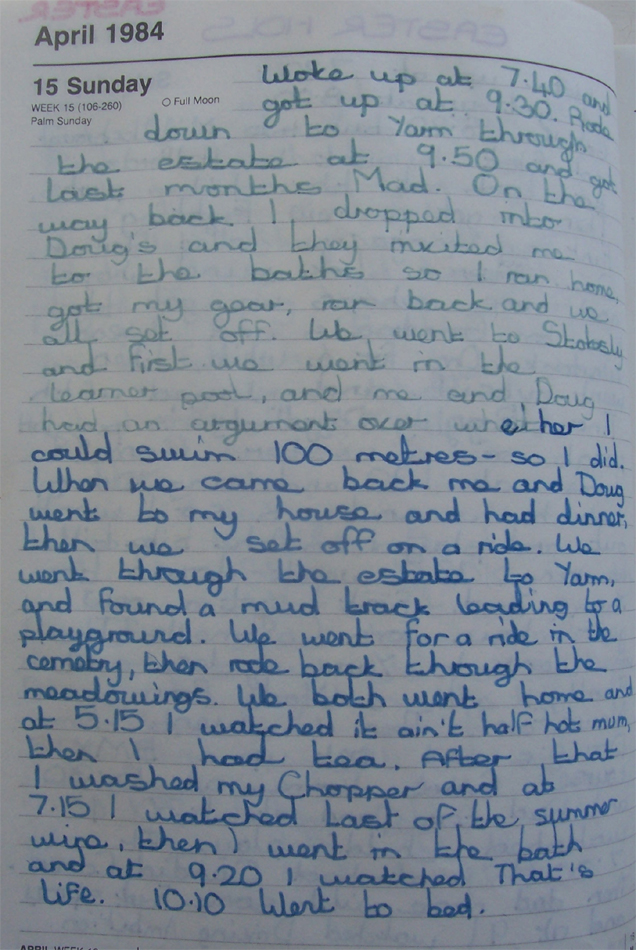 EASTER
EASTER HOLS
April 1984
15 Sunday
WEEK 15 (106-260)
Palm Sunday
Full Moon
Woke up at 7.40 and
got up at 9.30. Rode
down to Yarm through
the estate at 9.50 and got
last months Mad. On the
way back I dropped into
Doug's and they invited me
to the baths so I ran home,
got my gear, ran back and we
all set off. We went to Stokesly
and first we went in the
learner pool, and me and Doug
had an argument over whether I
could swim 100 metres - so I did.
When we came back me and Doug
went to my house and had dinner,
then we set off on a ride. We
went through the estate to Yarm,
and found a mud track leading to a
playground. We went for a ride in the
cemetry, then rode back through the
meadowings. We both went home and
at 5.15 I watched it ain't half hot mum,
then I had tea. After that
I washed my Chopper and at
7.15 I watched Last of the summer
wine, then I went in the bath
and at 9.20 I watched That's
Life. 10.10 Went to bed.